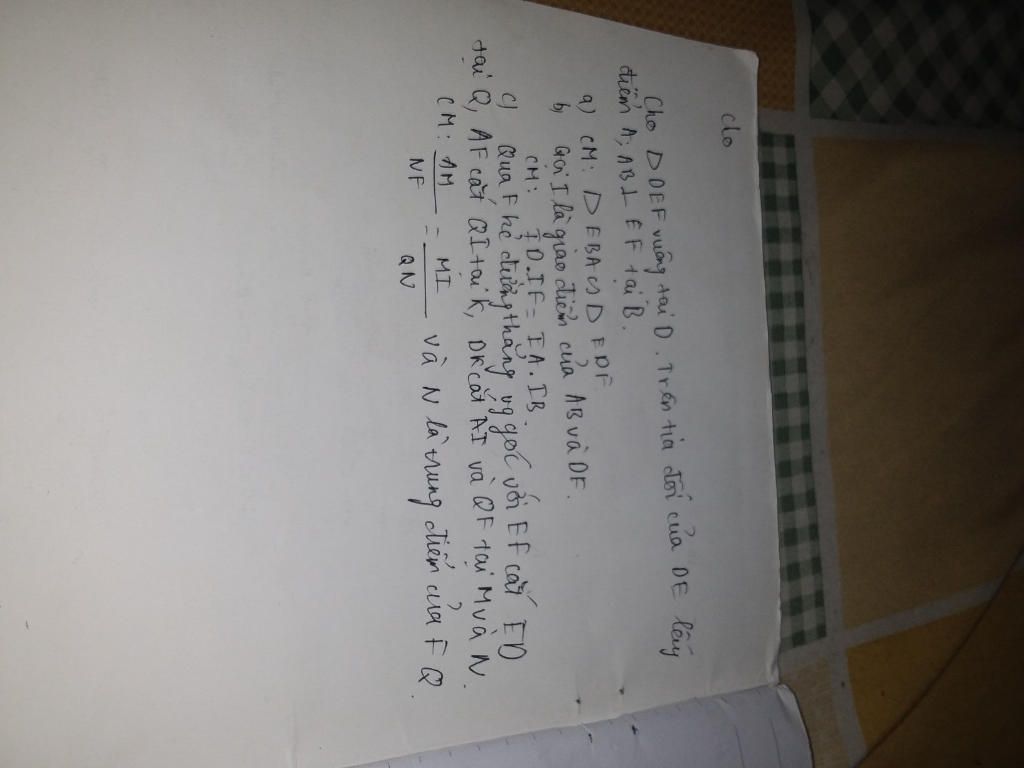 Cho
Cho Δ DEF vuông tại D. Trên tia đối của DE lấy
điểm A; AB ⊥ EF tại B.
a) CM: Δ EBA ∽ Δ EDF
b, Gọi I là giao điểm của AB và DF.
CM: ID.IF = IA.IB.
c) Qua F kẻ đường thẳng vg góc với EF cắt ED
tại Q, AF cắt QI tại K, DK cắt AI và QF tại M và N.
CM: AM/NF = MI/QN và N là trung điểm của FQ.